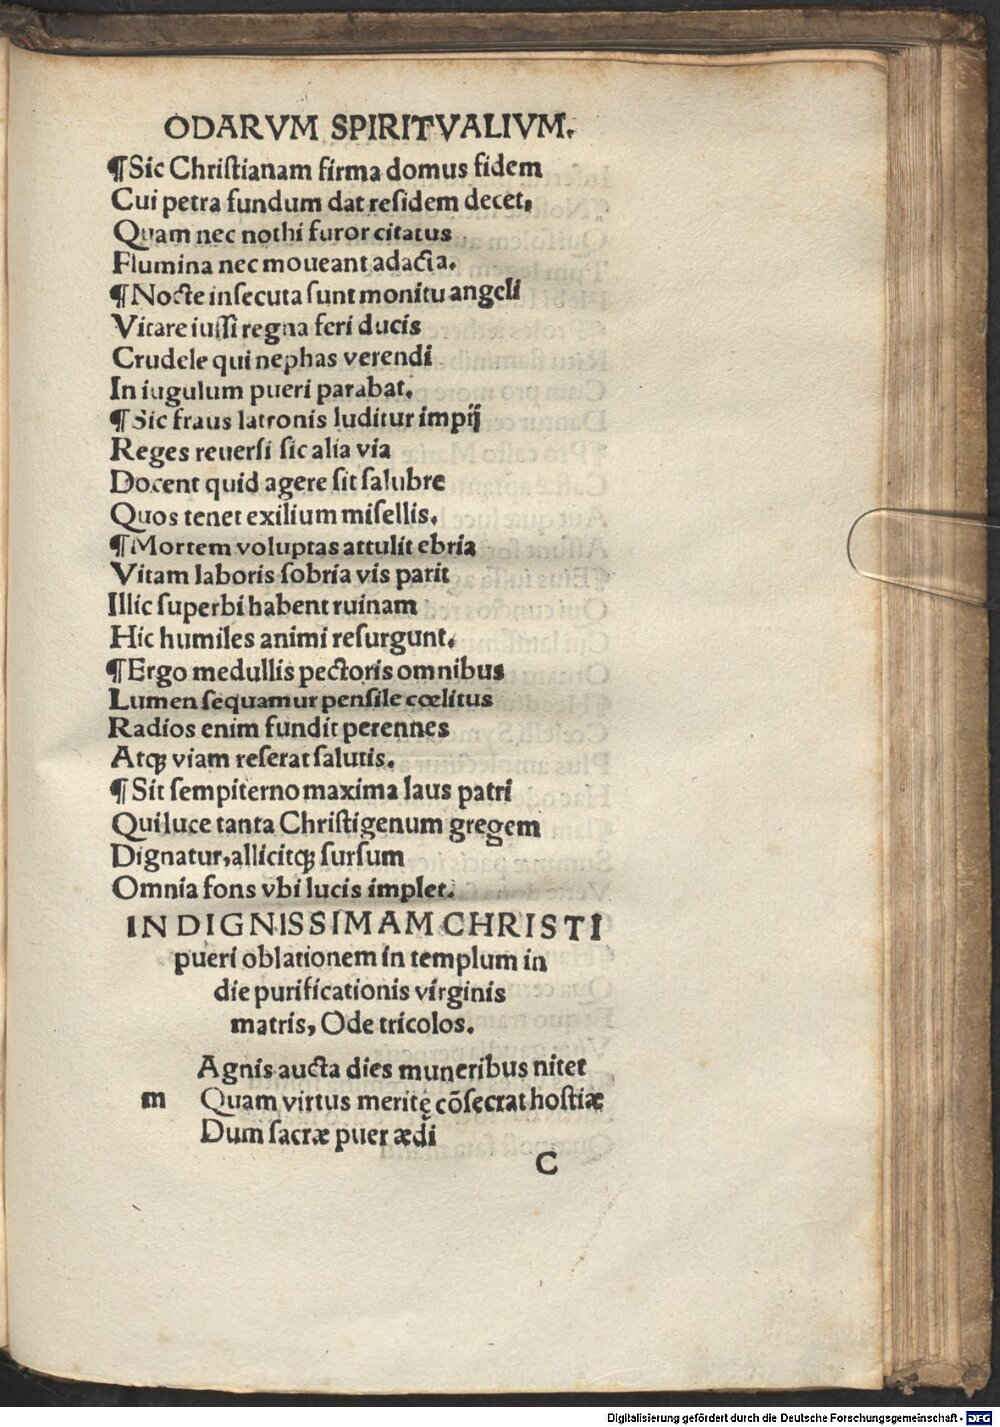 ODARVM SPIRITVALIVM.
¶Sic Chriſtianam firma domus fidem
Cui petra fundum dat reſidem decet,
Quam nec nothi furor citatus
Flumina nec moueant adacta.
¶Nocte inſecuta ſunt monitu angeli
Vitare iuſſi regna feri ducis
Crudele qui nephas verendi
In iugulum pueri parabat.
¶Sic fraus latronis luditur impij
Reges reuerſi ſic alia via
Docent quid agere ſit ſalubre
Quos tenet exilium miſellis.
¶Mortem voluptas attulit ebria
Vitam laboris ſobria vis parit
Illic ſuperbi habent ruinam
Hic humiles animi reſurgunt.
¶Ergo medullis pectoris omnibus
Lumen ſequamur penſile cœlitus
Radios enim fundit perennes
Atqꝫ viam reſerat ſalutis.
¶Sit ſempiterno maxima laus patri
Qui luce tanta Chriſtigenum gregem
Dignatur, allicitqꝫ ſurſum
Omnia fons vbi lucis implet.
IN DIGNISSIMAM CHRISTI
pueri oblationem in templum in
die purificationis virginis
matris, Ode tricolos.
Agnis aucta dies muneribus nitet
m Quam virtus meritę cōſecrat hoſtiæ
Dum ſacræ puer ædi
C
Digitalisierung gefördert durch die Deutsche Forschungsgemeinschaft - DFG